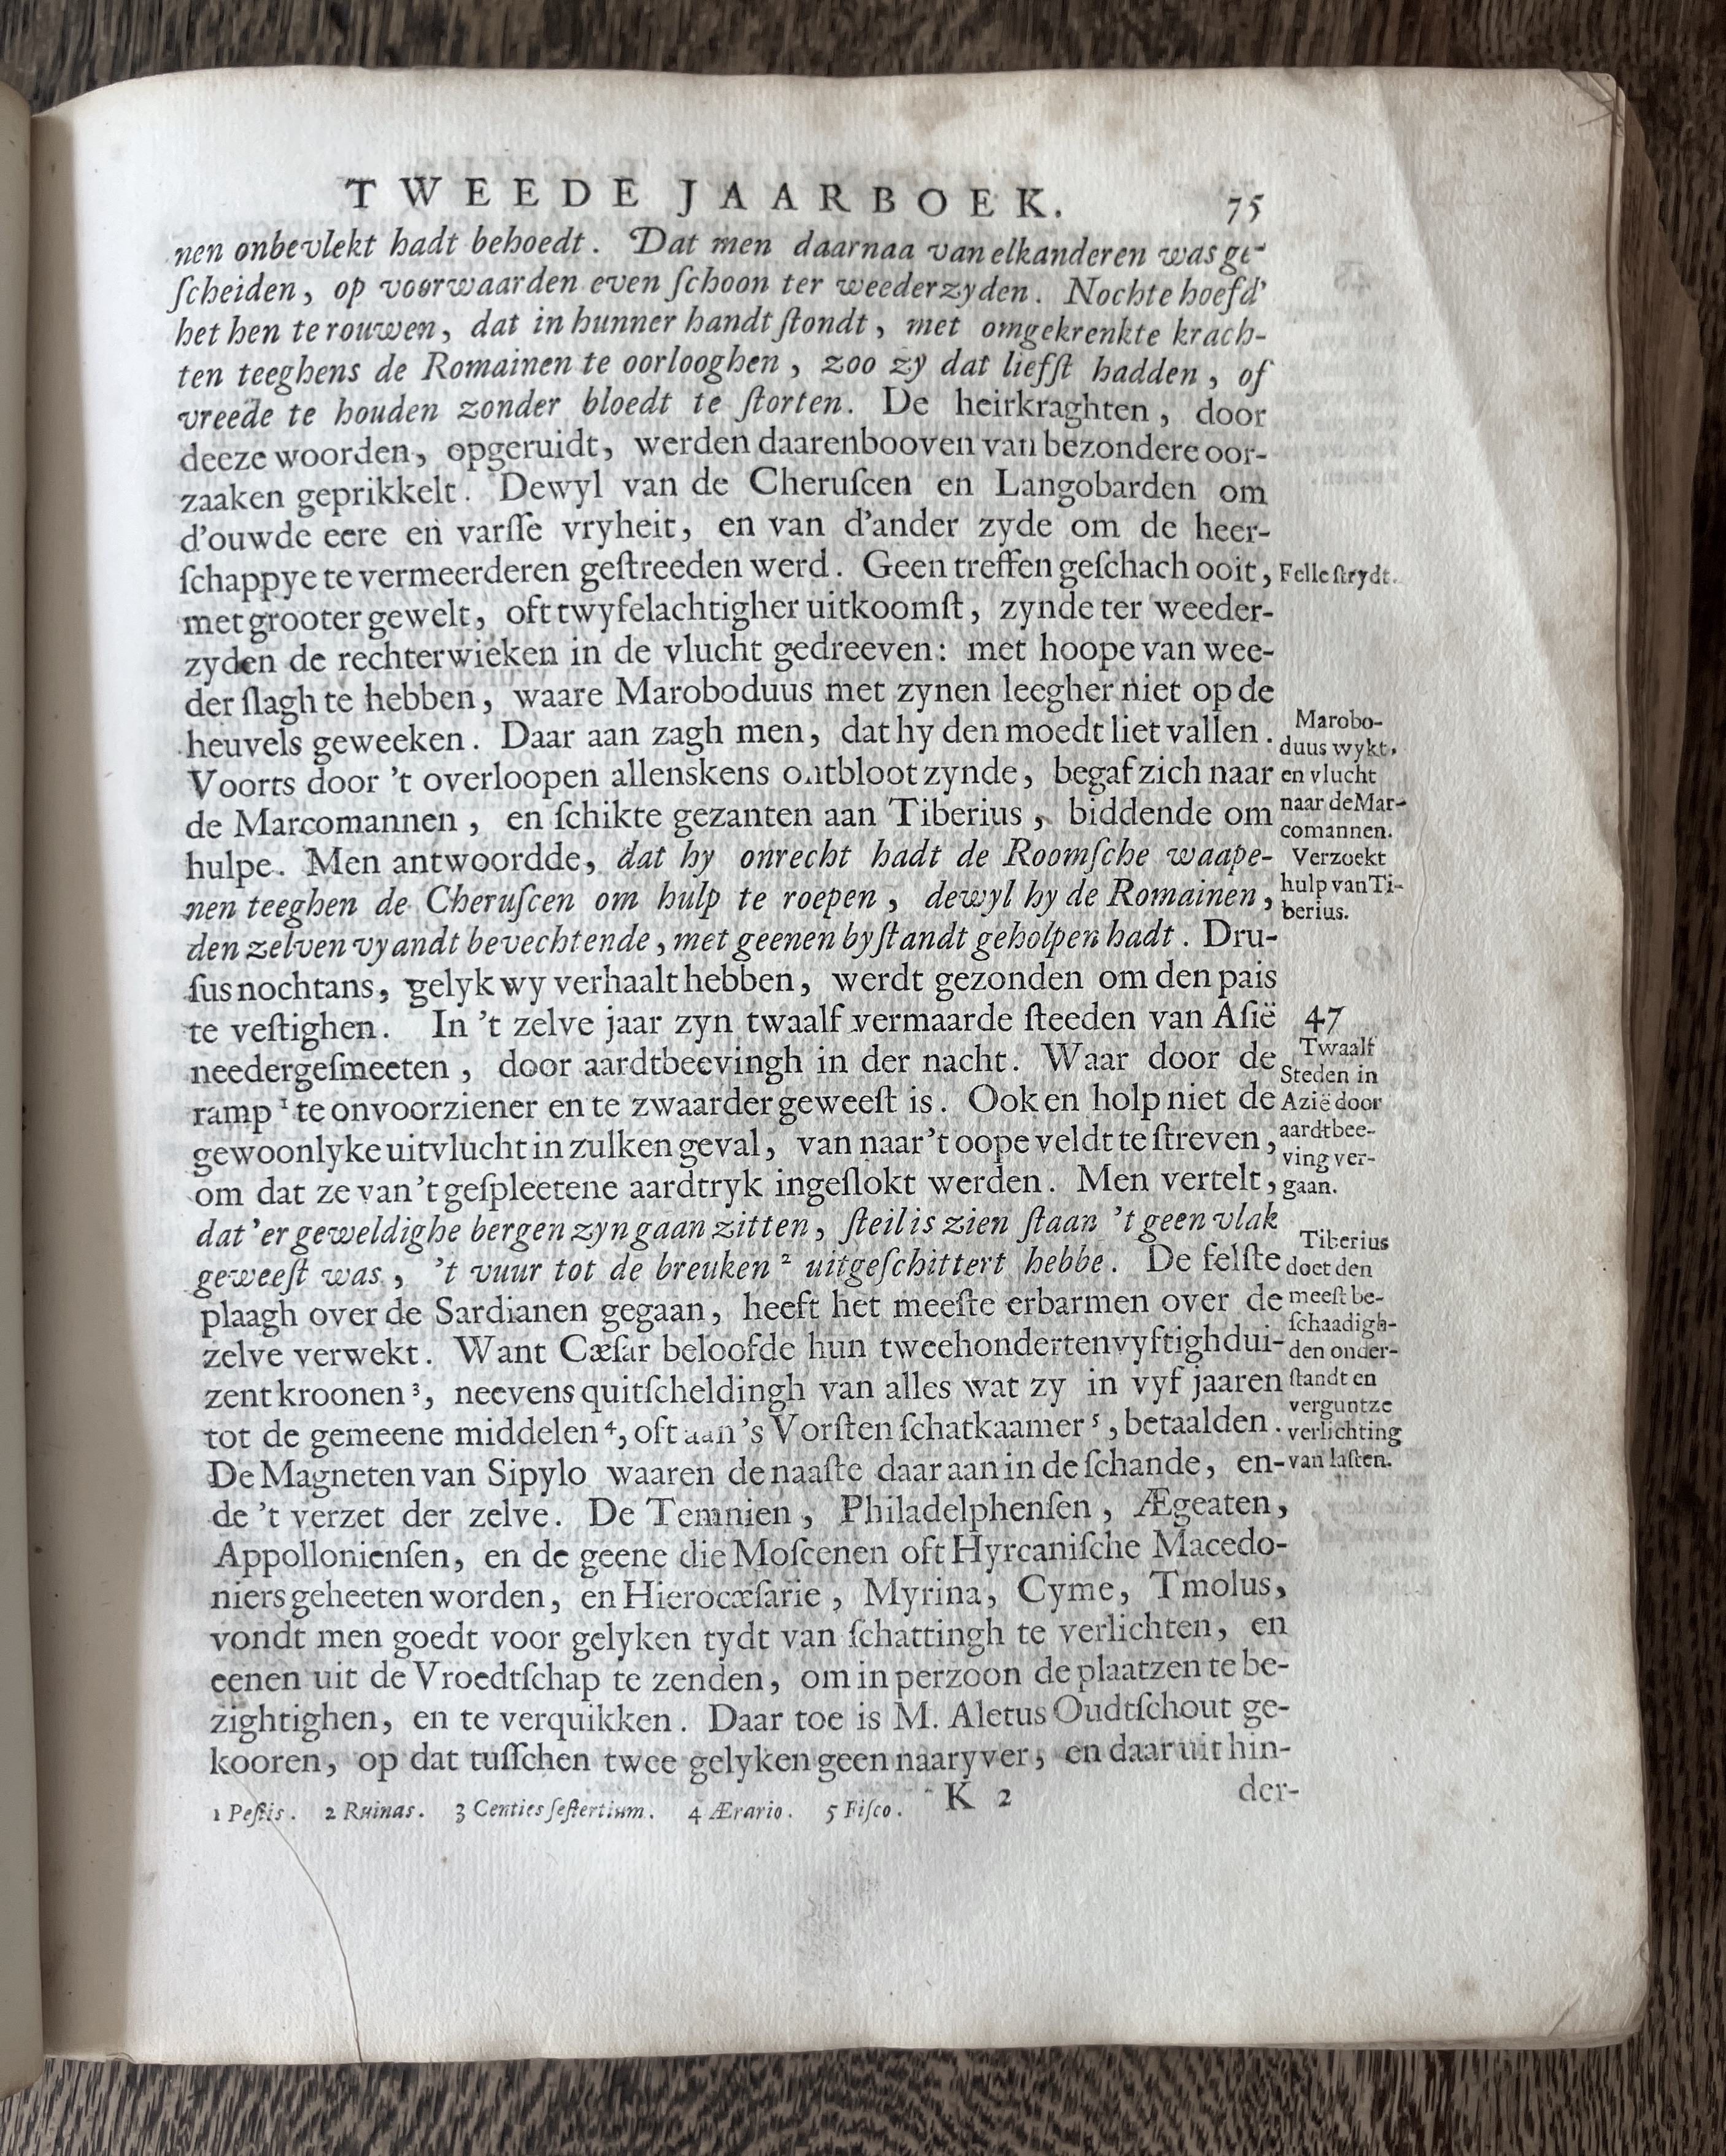 TWEEDE JAARBOEK. 75
nen onbevlekt hadt behoedt. Dat men daarnaa van elkanderen was ge-
ſcheiden, op voorwaarden even ſchoon ter weederzyden. Nochte hoefd'
het hen te rouwen, dat in hunner handt ſtondt, met omgekrenkte krach-
ten teeghens de Romainen te oorlooghen, zoo zy dat liefſt hadden, of
vreede te houden zonder bloedt te ſtorten. De heirkraghten, door
deeze woorden, opgeruidt, werden daarenbooven van bezondere oor-
zaaken geprikkelt. Dewyl van de Cheruſcen en Langobarden om
d'ouwde eere en varſſe vryheit, en van d'ander zyde om de heer-
ſchappye te vermeerderen geſtreeden werd. Geen treffen geſchach ooit,
met grooter gewelt, oft twyfelachtigher uitkoomſt, zynde ter weeder-
zyden de rechterwieken in de vlucht gedreeven: met hoope van wee-
der ſlagh te hebben, waare Maroboduus met zynen leegher niet op de
heuvels geweeken. Daar aan zagh men, dat hy den moedt liet vallen.
Voorts door 't overloopen allenskens ontbloot zynde, begaf zich naar
de Marcomannen, en ſchikte gezanten aan Tiberius, biddende om
hulpe. Men antwoordde, dat hy onrecht hadt de Roomſche waape-
nen teeghen de Cheruſcen om hulp te roepen, dewyl hy de Romainen,
den zelven vyandt bevechtende, met geenen byſtandt geholpen hadt. Dru-
ſus nochtans, gelyk wy verhaalt hebben, werdt gezonden om den pais
te veſtighen. In 't zelve jaar zyn twaalf vermaarde ſteeden van Aſië
needergeſmeeten, door aardtbeevingh in der nacht. Waar door de
ramp ¹ te onvoorziener en te zwaarder geweeſt is. Ook en holp niet de
gewoonlyke uitvlucht in zulken geval, van naar 't oope veldt te ſtreven,
om dat ze van 't geſpleetene aardtryk ingeſlokt werden. Men vertelt,
dat 'er geweldighe bergen zyn gaan zitten, ſteil is zien ſtaan 't geen vlak
geweeſt was, 't vuur tot de breuken ² uitgeſchittert hebbe. De felſte
plaagh over de Sardianen gegaan, heeft het meeſte erbarmen over de
zelve verwekt. Want Cæſar beloofde hun tweehondertenvyftighdui-
zent kroonen ³, neevens quitſcheldingh van alles wat zy in vyf jaaren
tot de gemeene middelen ⁴, oft aan 's Vorſten ſchatkaamer ⁵, betaalden.
De Magneten van Sipylo waaren de naaſte daar aan in de ſchande, en-
de 't verzet der zelve. De Temnien, Philadelphenſen, Ægeaten,
Appollonienſen, en de geene die Moſcenen oft Hyrcaniſche Macedo-
niers geheeten worden, en Hierocæſarie, Myrina, Cyme, Tmolus,
vondt men goedt voor gelyken tydt van ſchattingh te verlichten, en
eenen uit de Vroedtſchap te zenden, om in perzoon de plaatzen te be-
zightighen, en te verquikken. Daar toe is M. Aletus Oudtſchout ge-
kooren, op dat tuſſchen twee gelyken geen naaryver, en daar uit hin-
K 2 der-
1 Peſtis. 2 Ruinas. 3 Centies ſeſtertium. 4 Ærario. 5 Fiſco.
Felle ſtrydt.
Marobo-
duus wykt,
en vlucht
naar de Mar-
comannen.
Verzoekt
hulp van Ti-
berius.
47
Twaalf
Steden in
Azië door
aardtbee-
ving ver-
gaan.
Tiberius
doet den
meeſt be-
ſchaadigh-
den onder-
ſtandt en
verguntze
verlichting
van laſten.